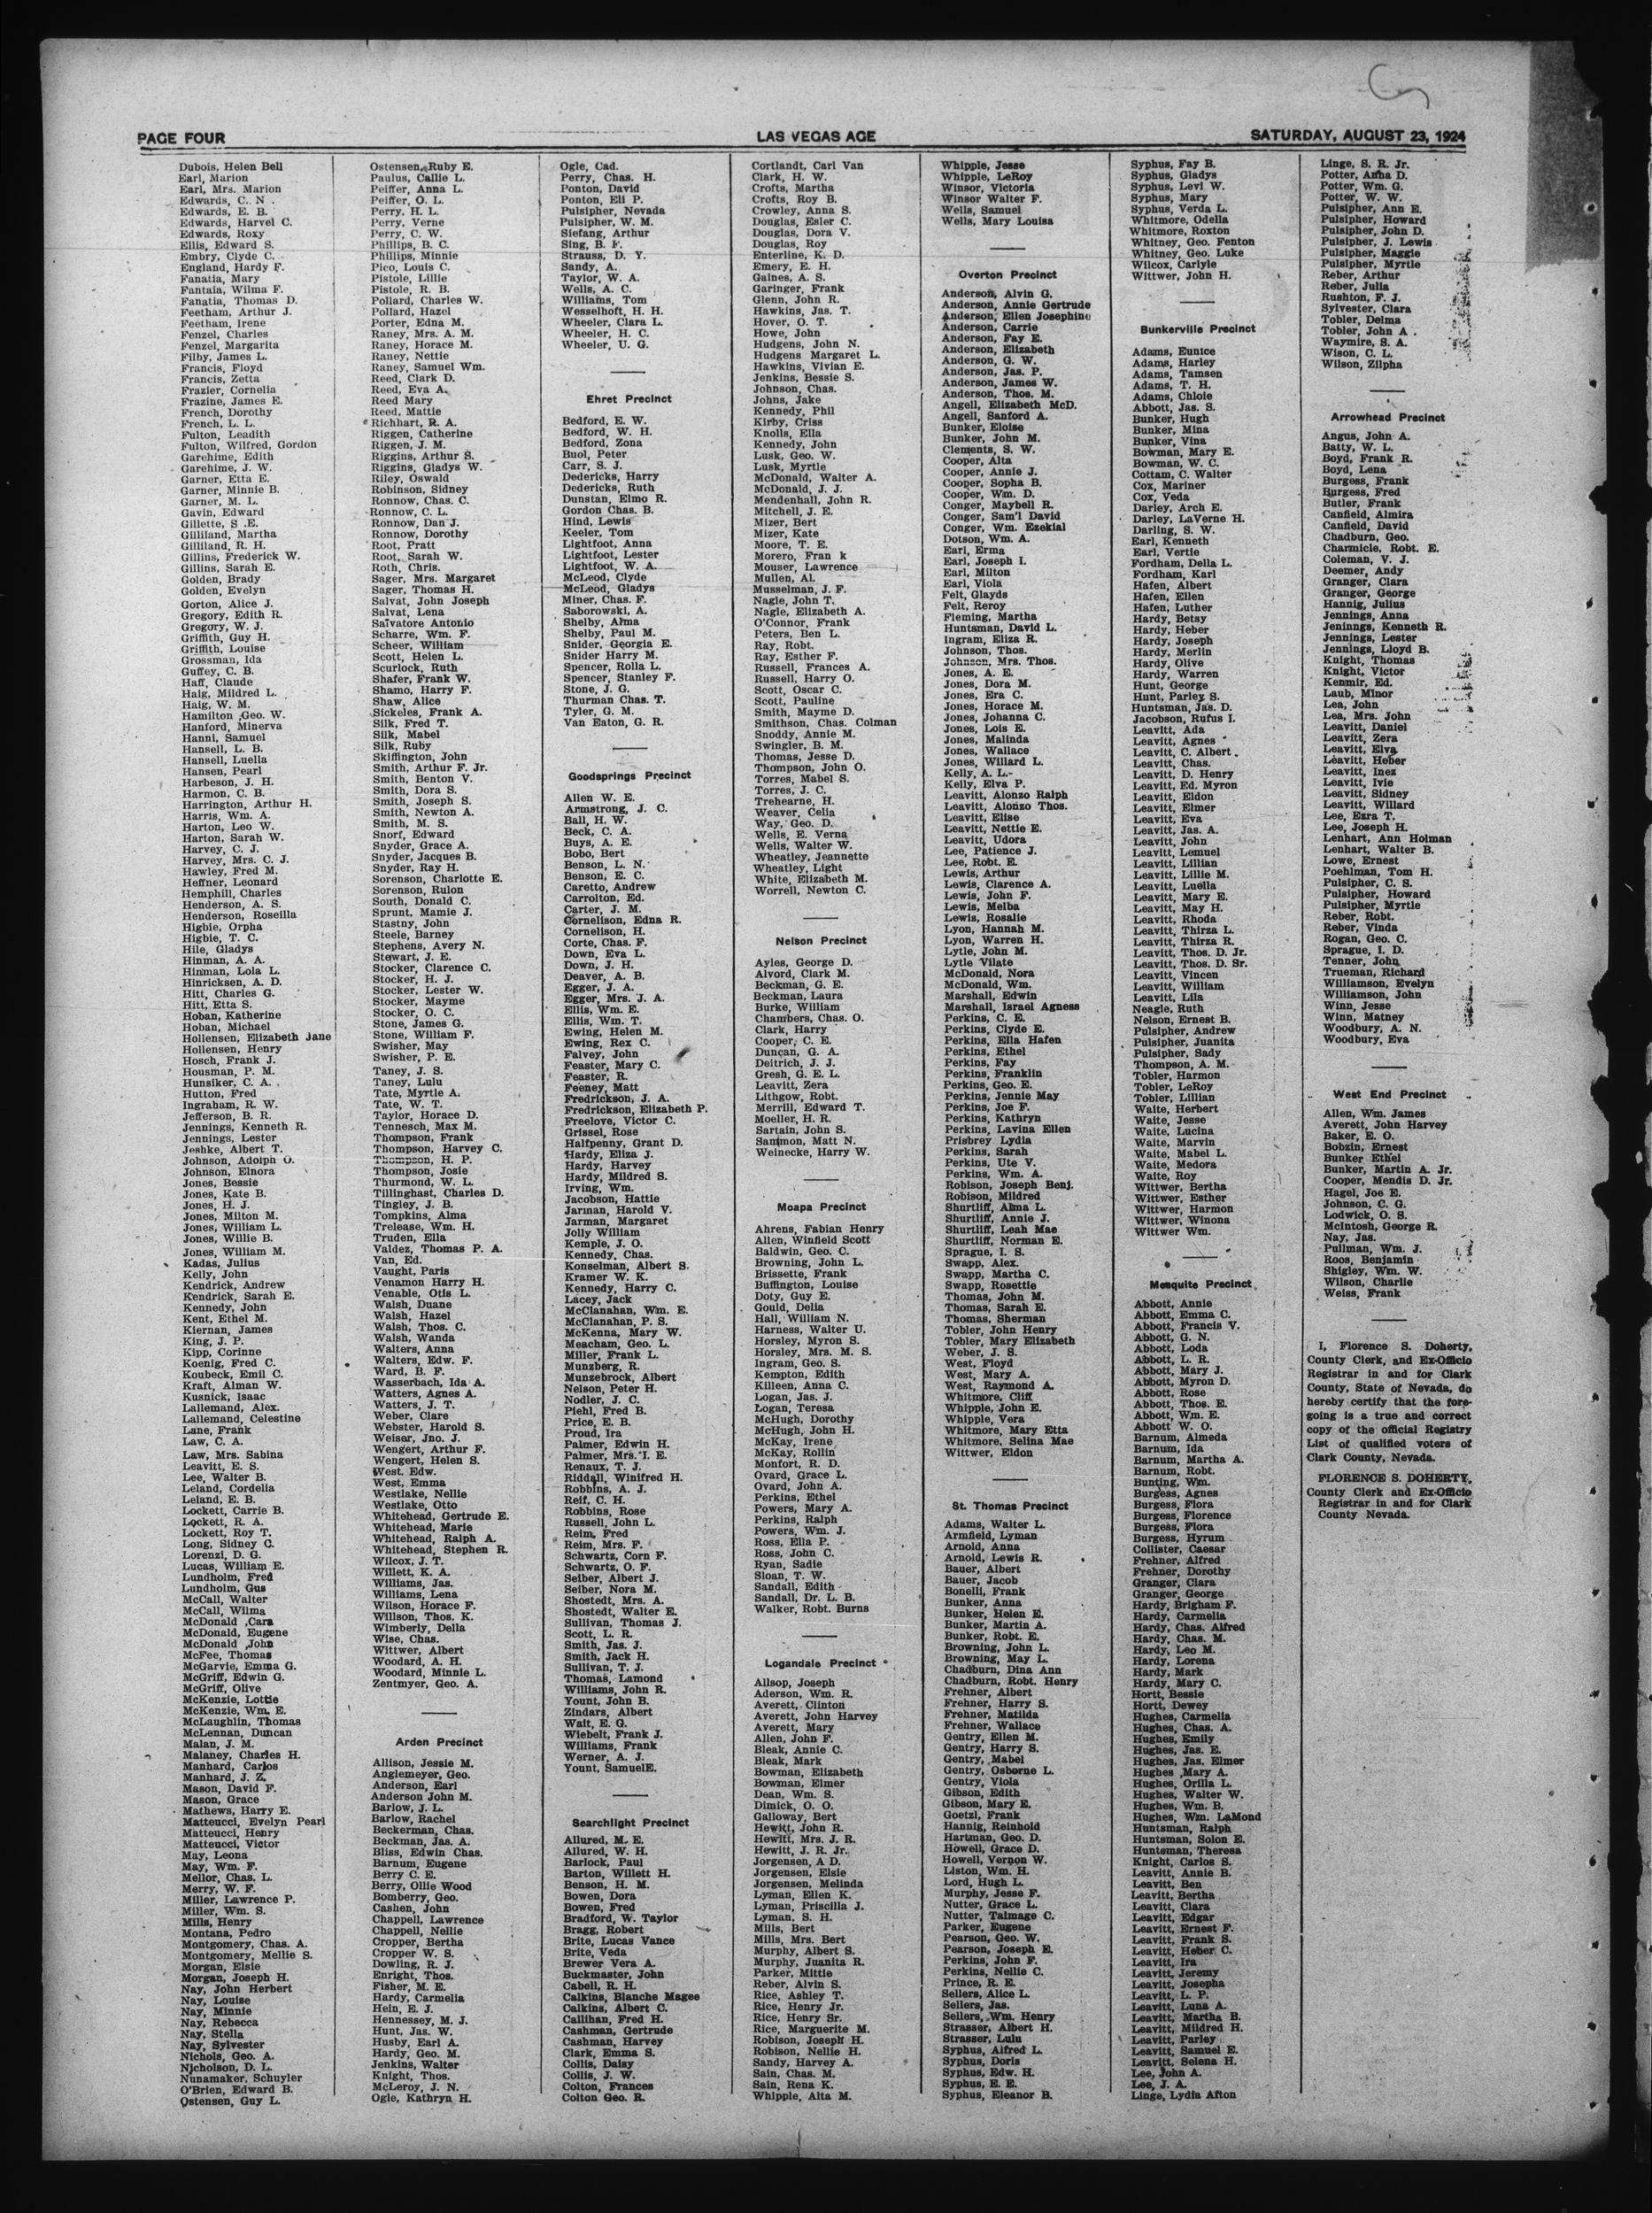 PAGE FOUR
LAS VEGAS AGE
SATURDAY, AUGUST 23, 1924
Dubois, Helen Bell
Earl, Marion
Earl, Mrs. Marion
Edwards, C. N .
Edwards, E. B.
Edwards, Harvel C.
Edwards, Roxy
Ellis, Edward S.
Embry, Clyde C.
England, Hardy F.
Fanatia, Mary
Fantaia, Wilma F.
Fanatia, Thomas D.
Feetham, Arthur J.
Feetham, Irene
Fenzel, Charles
Fenzel, Margarita
Filby, James L.
Francis, Floyd
Francis, Zetta
Frazier, Cornelia
Frazine, James E.
French, Dorothy
French, L. L.
Fulton, Leadith
Fulton, Wilfred, Gordon
Garehime, Edith
Garehime, J. W.
Garner, Etta E.
Garner, Minnie B.
Garner, M. L.
Gavin, Edward
Gillette, S .E.
Gilliland, Martha
Gilliland, R. H.
Gillins, Frederick W.
Gillins, Sarah E.
Golden, Brady
Golden, Evelyn
Gorton, Alice J.
Gregory, Edith R.
Gregory, W. J.
Griffith, Guy H.
Griffith, Louise
Grossman, Ida
Guffey, C. B.
Haff, Claude
Haig, Mildred L.
Haig, W. M.
Hamilton ,Geo. W.
Hanford, Minerva
Hanni, Samuel
Hansell, L. B.
Hansell, Luella
Hansen, Pearl
Harbeson, J. H.
Harmon, C. B.
Harrington, Arthur H.
Harris, Wm. A.
Harton, Leo W.
Harton, Sarah W.
Harvey, C. J.
Harvey, Mrs. C. J.
Hawley, Fred M.
Heffner, Leonard
Hemphill, Charles
Henderson, A. S.
Henderson, Roseilla
Higbie, Orpha
Higbie, T. C.
Hile, Gladys
Hinman, A. A.
Hinman, Lola L.
Hinricksen, A. D.
Hitt, Charles G.
Hitt, Etta S.
Hoban, Katherine
Hoban, Michael
Hollensen, Elizabeth Jane
Hollensen, Henry
Hosch, Frank J.
Housman, P. M.
Hunsiker, C. A.
Hutton, Fred
Ingraham, R. W.
Jefferson, B. R.
Jennings, Kenneth R.
Jennings, Lester
Jeshke, Albert T.
Johnson, Adolph O.
Johnson, Elnora
Jones, Bessie
Jones, Kate B.
Jones, H. J.
Jones, Milton M.
Jones, William L.
Jones, Willie B.
Jones, William M.
Kadas, Julius
Kelly, John
Kendrick, Andrew
Kendrick, Sarah E.
Kennedy, John
Kent, Ethel M.
Kiernan, James
King, J. P.
Kipp, Corinne
Koenig, Fred C.
Koubeck, Emil C.
Kraft, Alman W.
Kusnick, Isaac
Lallemand, Alex.
Lallemand, Celestine
Lane, Frank
Law, C. A.
Law, Mrs. Sabina
Leavitt, E. S.
Lee, Walter B.
Leland, Cordelia
Leland, E. B.
Lockett, Carrie B.
Lockett, R. A.
Lockett, Roy T.
Long, Sidney C.
Lorenzi, D. G.
Lucas, William E.
Lundholm, Fred
Lundholm, Gus
McCall, Walter
McCall, Wilma
McDonald ,Cara
McDonald, Eugene
McDonald ,John
McFee, Thomas
McGarvie, Emma G.
McGriff, Edwin G.
McGriff, Olive
McKenzie, Lottie
McKenzie, Wm. E.
McLaughlin, Thomas
McLennan, Duncan
Malan, J. M.
Malaney, Charles H.
Manhard, Carlos
Manhard, J. Z.
Mason, David F.
Mason, Grace
Mathews, Harry E.
Matteucci, Evelyn Pearl
Matteucci, Henry
Matteucci, Victor
May, Leona
May, Wm. F.
Mellor, Chas. L.
Merry, W. F.
Miller, Lawrence P.
Miller, Wm. S.
Mills, Henry
Montana, Pedro
Montgomery, Chas. A.
Montgomery, Mellie S.
Morgan, Elsie
Morgan, Joseph H.
Nay, John Herbert
Nay, Louise
Nay, Minnie
Nay, Rebecca
Nay, Stella
Nay, Sylvester
Nichols, Geo. A.
Nicholson, D. L.
Nunamaker, Schuyler
O'Brien, Edward B.
Ostensen, Guy L.
Ostensen, Ruby E.
Paulus, Callie L.
Peiffer, Anna L.
Peiffer, O. L.
Perry, H. L.
Perry, Verne
Perry, C. W.
Phillips, B. C.
Phillips, Minnie
Pico, Louis C.
Pistole, Lillie
Pistole, R. B.
Pollard, Charles W.
Pollard, Hazel
Porter, Edna M.
Raney, Mrs. A. M.
Raney, Horace M.
Raney, Nettie
Raney, Samuel Wm.
Reed, Clark D.
Reed, Eva A.
Reed Mary
Reed, Mattie
Richhart, R. A.
Riggen, Catherine
Riggen, J. M.
Riggins, Arthur S.
Riggins, Gladys W.
Riley, Oswald
Robinson, Sidney
Ronnow, Chas. C.
Ronnow, C. L.
Ronnow, Dan J.
Ronnow, Dorothy
Root, Pratt
Root, Sarah W.
Roth, Chris.
Sager, Mrs. Margaret
Sager, Thomas H.
Salvat, John Joseph
Salvat, Lena
Salvatore Antonio
Scharre, Wm. F.
Scheer, William
Scott, Helen L.
Scurlock, Ruth
Shafer, Frank W.
Shamo, Harry F.
Shaw, Alice
Sickeles, Frank A.
Silk, Fred T.
Silk, Mabel
Silk, Ruby
Skiffington, John
Smith, Arthur F. Jr.
Smith, Benton V.
Smith, Dora S.
Smith, Joseph S.
Smith, Newton A.
Smith, M. S.
Snorf, Edward
Snyder, Grace A.
Snyder, Jacques B.
Snyder, Ray H.
Sorenson, Charlotte E.
Sorenson, Rulon
South, Donald C.
Sprunt, Mamie J.
Stastny, John
Steele, Barney
Stephens, Avery N.
Stewart, J. E.
Stocker, Clarence C.
Stocker, H. J.
Stocker, Lester W.
Stocker, Mayme
Stocker, O. C.
Stone, James G.
Stone, William F.
Swisher, May
Swisher, P. E.
Taney, J. S.
Taney, Lulu
Tate, Myrtle A.
Tate, W. T.
Taylor, Horace D.
Tennesch, Max M.
Thompson, Frank
Thompson, Harvey C.
Thompson, H. P.
Thompson, Josie
Thurmond, W. L.
Tillinghast, Charles D.
Tingley, J. B.
Tompkins, Alma
Trelease, Wm. H.
Truden, Ella
Valdez, Thomas P. A.
Van, Ed.
Vaught, Paris
Venamon Harry H.
Venable, Otis L.
Walsh, Duane
Walsh, Hazel
Walsh, Thos. C.
Walsh, Wanda
Walters, Anna
Walters, Edw. F.
Ward, B. F.
Wasserbach, Ida A.
Watters, Agnes A.
Watters, J. T.
Weber, Clare
Webster, Harold S.
Weiser, Jno. J.
Wengert, Arthur F.
Wengert, Helen S.
West. Edw.
West, Emma
Westlake, Nellie
Westlake, Otto
Whitehead, Gertrude E.
Whitehead, Marie
Whitehead, Ralph A.
Whitehead, Stephen R.
Wilcox, J. T.
Willett, K. A.
Williams, Jas.
Williams, Lena
Wilson, Horace F.
Willson, Thos. K.
Wimberly, Della
Wise, Chas.
Wittwer, Albert
Woodard, A. H.
Woodard, Minnie L.
Zentmyer, Geo. A.
Arden Precinct
Allison, Jessie M.
Anglemeyer, Geo.
Anderson, Earl
Anderson John M.
Barlow, J. L.
Barlow, Rachel
Beckerman, Chas.
Beckman, Jas. A.
Bliss, Edwin Chas.
Barnum, Eugene
Berry C. E.
Berry, Ollie Wood
Bomberry, Geo.
Cashen, John
Chappell, Lawrence
Chappell, Nellie
Cropper, Bertha
Cropper W. S.
Dowling, R. J.
Enright, Thos.
Fisher, M. E.
Hardy, Carmelia
Hein, E. J.
Hennessey, M. J.
Hunt, Jas. W.
Husby, Earl A.
Hardy, Geo. M.
Jenkins, Walter
Knight, Thos.
McLeroy, J. N.
Ogle, Kathryn H.
Ogle, Cad.
Perry, Chas. H.
Ponton, David
Ponton, Eli P.
Pulsipher, Nevada
Pulsipher, W. M.
Siefang, Arthur
Sing, B. F.
Strauss, D. Y.
Sandy, A.
Taylor, W. A.
Wells, A. C.
Williams, Tom
Wesselhoft, H. H.
Wheeler, Clara L.
Wheeler, H. C.
Wheeler, U. G.
Ehret Precinct
Bedford, E. W.
Bedford, W. H.
Bedford, Zona
Buol, Peter
Carr, S. J.
Dedericks, Harry
Dedericks, Ruth
Dunstan, Elmo R.
Gordon Chas. B.
Hind, Lewis
Keeler, Tom
Lightfoot, Anna
Lightfoot, Lester
Lightfoot, W. A.
McLeod, Clyde
McLeod, Gladys
Miner, Chas. F.
Saborowski, A.
Shelby, Alma
Shelby, Paul M.
Snider, Georgia E.
Snider Harry M.
Spencer, Rolla L.
Spencer, Stanley F.
Stone, J. G.
Thurman Chas. T.
Tyler, G. M.
Van Eaton, G. R.
Goodsprings Precinct
Allen W. E.
Armstrong, J. C.
Ball, H. W.
Beck, C. A.
Buys, A. E.
Bobo, Bert
Benson, L. N.
Benson, E. C.
Caretto, Andrew
Carrolton, Ed.
Carter, J. M.
Cornelison, Edna R.
Cornelison, H.
Corte, Chas. F.
Down, Eva L.
Down, J. H.
Deaver, A. B.
Egger, J. A.
Egger, Mrs. J. A.
Ellis, Wm. E.
Ellis, Wm. T.
Ewing, Helen M.
Ewing, Rex C.
Falvey, John
Feaster, Mary C.
Feaster, R.
Feeney, Matt
Fredrickson, J. A.
Fredrickson, Elizabeth P.
Freelove, Victor C.
Grissel, Rose
Halfpenny, Grant D.
Hardy, Eliza J.
Hardy, Harvey
Hardy, Mildred S.
Irving, Wm.
Jacobson, Hattie
Jarman, Harold V.
Jarman, Margaret
Jolly William
Kemple, J. O.
Kennedy, Chas.
Konselman, Albert S.
Kramer W. K.
Kennedy, Harry C.
Lacey, Jack
McClanahan, Wm. E.
McClanahan, P. S.
McKenna, Mary W.
Meacham, Geo. L.
Miller, Frank L.
Munzberg, R.
Munzebrock, Albert
Nelson, Peter H.
Nodler, J. C.
Piehl, Fred B.
Price, E. B.
Proud, Ira
Palmer, Edwin H.
Palmer, Mrs. I. E.
Renaux, T. J.
Riddall, Winifred H.
Robbins, A. J.
Reif, C. H.
Robbins, Rose
Russell, John L.
Reim, Fred
Reim, Mrs. F.
Schwartz, Corn F.
Schwartz, O. F.
Seiber, Albert J.
Seiber, Nora M.
Shostedt, Mrs. A.
Shostedt, Walter E.
Sullivan, Thomas J.
Scott, L. R.
Smith, Jas. J.
Smith, Jack H.
Sullivan, T. J.
Thomas, Lamond
Williams, John R.
Yount, John B.
Zindars, Albert
Wait, E. G.
Wiebelt, Frank J.
Williams, Frank
Werner, A. J.
Yount, SamuelE.
Searchlight Precinct
Allured, M. E.
Allured, W. H.
Barlock, Paul
Barton, Willett H.
Benson, H. M.
Bowen, Dora
Bowen, Fred
Bradford, W. Taylor
Bragg, Robert
Brite, Lucas Vance
Brite, Veda
Brewer Vera A.
Buckmaster, John
Cabell, R. H.
Calkins, Blanche Magee
Calkins, Albert C.
Callihan, Fred H.
Cashman, Gertrude
Cashman, Harvey
Clark, Emma S.
Collis, Daisy
Collis, J. W.
Colton, Frances
Colton Geo. R.
Cortlandt, Carl Van
Clark, H. W.
Crofts, Martha
Crofts, Roy B.
Crowley, Anna S.
Douglas, Esler C.
Douglas, Dora V.
Douglas, Roy
Enterline, K. D.
Emery, E. H.
Gaines, A. S.
Garinger, Frank
Glenn, John R.
Hawkins, Jas. T.
Hover, O. T.
Howe, John
Hudgens, John N.
Hudgens Margaret L.
Hawkins, Vivian E.
Jenkins, Bessie S.
Johnson, Chas.
Johns, Jake
Kennedy, Phil
Kirby, Criss
Knolls, Ella
Kennedy, John
Lusk, Geo. W.
Lusk, Myrtle
McDonald, Walter A.
McDonald, J. J.
Mendenhall, John R.
Mitchell, J. E.
Mizer, Bert
Mizer, Kate
Moore, T. E.
Morero, Fran k
Mouser, Lawrence
Mullen, Al.
Musselman, J. F.
Nagle, John T.
Nagle, Elizabeth A.
O'Connor, Frank
Peters, Ben L.
Ray, Robt.
Ray, Esther F.
Russell, Frances A.
Russell, Harry O.
Scott, Oscar C.
Scott, Pauline
Smith, Mayme D.
Smithson, Chas. Colman
Snoddy, Annie M.
Swingler, B. M.
Thomas, Jesse D.
Thompson, John O.
Torres, Mabel S.
Torres, J. C.
Trehearne, H.
Weaver, Celia
Way, Geo. D.
Wells, E. Verna
Wells, Walter W.
Wheatley, Jeannette
Wheatley, Light
White, Elizabeth M.
Worrell, Newton C.
Nelson Precinct
Ayles, George D.
Alvord, Clark M.
Beckman, G. E.
Beckman, Laura
Burke, William
Chambers, Chas. O.
Clark, Harry
Cooper, C. E.
Duncan, G. A.
Deitrich, J. J.
Gresh, G. E. L.
Leavitt, Zera
Lithgow, Robt.
Merrill, Edward T.
Moeller, H. R.
Sartain, John S.
Sammon, Matt N.
Weinecke, Harry W.
Moapa Precinct
Ahrens, Fabian Henry
Allen, Winfield Scott
Baldwin, Geo. C.
Browning, John L.
Brissette, Frank
Buffington, Louise
Doty, Guy E.
Gould, Delia
Hall, William N.
Harness, Walter U.
Horsley, Myron S.
Horsley, Mrs. M. S.
Ingram, Geo. S.
Kempton, Edith
Killeen, Anna C.
Logan, Jas. J.
Logan, Teresa
McHugh, Dorothy
McHugh, John H.
McKay, Irene
McKay, Rollin
Monfort, R. D.
Ovard, Grace L.
Ovard, John A.
Perkins, Ethel
Powers, Mary A.
Perkins, Ralph
Powers, Wm. J.
Ross, Ella P.
Ross, John C.
Ryan, Sadie
Sloan, T. W.
Sandall, Edith
Sandall, Dr. L. B.
Walker, Robt. Burns
Logandale Precinct
Allsop, Joseph
Aderson, Wm. R.
Averett, Clinton
Averett, John Harvey
Averett, Mary
Allen, John F.
Bleak, Annie C.
Bleak, Mark
Bowman, Elizabeth
Bowman, Elmer
Dean, Wm. S.
Dimick, O. O.
Galloway, Bert
Hewitt, John R.
Hewitt, Mrs. J. R.
Hewitt, J. R. Jr.
Jorgensen, A D.
Jorgensen, Elsie
Jorgensen, Melinda
Lyman, Ellen K.
Lyman, Priscilla J.
Lyman, S. H.
Mills, Bert
Mills, Mrs. Bert
Murphy, Albert S.
Murphy, Juanita R.
Parker, Mittie
Reber, Alvin S.
Rice, Ashley T.
Rice, Henry Jr.
Rice, Henry Sr.
Rice, Marguerite M.
Robison, Joseph H.
Robison, Nellie H.
Sandy, Harvey A.
Sain, Chas. M.
Sain, Rena K.
Whipple, Alta M.
Whipple, Jesse
Whipple, LeRoy
Winsor, Victoria
Winsor Walter F.
Wells, Samuel
Wells, Mary Louisa
Overton Precinct
Anderson, Alvin G.
Anderson, Annie Gertrude
Anderson, Ellen Josephine
Anderson, Carrie
Anderson, Fay E.
Anderson, Elizabeth
Anderson, G. W.
Anderson, Jas. P.
Anderson, James W.
Anderson, Thos. M.
Angell, Elizabeth McD.
Angell, Sanford A.
Bunker, Eloise
Bunker, John M.
Clements, S. W.
Cooper, Alta
Cooper, Annie J.
Cooper, Sopha B.
Cooper, Wm. D.
Conger, Maybell R.
Conger, Sam'l David
Conger, Wm. Ezekial
Dotson, Wm. A.
Earl, Erma
Earl, Joseph I.
Earl, Milton
Earl, Viola
Felt, Glayds
Felt, Reroy
Fleming, Martha
Huntsman, David L.
Ingram, Eliza R.
Johnson, Thos.
Johnson, Mrs. Thos.
Jones, A. E.
Jones, Dora M.
Jones, Era C.
Jones, Horace M.
Jones, Johanna C.
Jones, Lois E.
Jones, Malinda
Jones, Wallace
Jones, Willard L.
Kelly, A. L.
Kelly, Elva P.
Leavitt, Alonzo Ralph
Leavitt, Alonzo Thos.
Leavitt, Elise
Leavitt, Nettie E.
Leavitt, Udora
Lee, Patience J.
Lee, Robt. E.
Lewis, Arthur
Lewis, Clarence A.
Lewis, John F.
Lewis, Melba
Lewis, Rosalie
Lyon, Hannah M.
Lyon, Warren H.
Lytle, John M.
Lytle Vilate
McDonald, Nora
McDonald, Wm.
Marshall, Edwin
Marshall, Israel Agness
Perkins, C. E.
Perkins, Clyde E.
Perkins, Ella Hafen
Perkins, Ethel
Perkins, Fay
Perkins, Franklin
Perkins, Geo. E.
Perkins, Jennie May
Perkins, Joe F.
Perkins, Kathryn
Perkins, Lavina Ellen
Prisbrey Lydia
Perkins, Sarah
Perkins, Ute V.
Perkins, Wm. A.
Robison, Joseph Benj.
Robison, Mildred
Shurtliff, Alma L.
Shurtliff, Annie J.
Shurtliff, Leah Mae
Shurtliff, Norman E.
Sprague, I. S.
Swapp, Alex.
Swapp, Martha C.
Swapp, Rosettie
Thomas, John M.
Thomas, Sarah E.
Thomas, Sherman
Tobler, John Henry
Tobler, Mary Elizabeth
Weber, J. S.
West, Floyd
West, Mary A.
West, Raymond A.
Whitmore, Cliff
Whipple, John E.
Whipple, Vera
Whitmore, Mary Etta
Whitmore, Selina Mae
Wittwer, Eldon
St. Thomas Precinct
Adams, Walter L.
Armfield, Lyman
Arnold, Anna
Arnold, Lewis R.
Bauer, Albert
Bauer, Jacob
Bonelli, Frank
Bunker, Anna
Bunker, Helen E.
Bunker, Martin A.
Bunker, Robt. E.
Browning, John L.
Browning, May L.
Chadburn, Dina Ann
Chadburn, Robt. Henry
Frehner, Albert
Frehner, Harry S.
Frehner, Matilda
Frehner, Wallace
Gentry, Ellen M.
Gentry, Harry S.
Gentry, Mabel
Gentry, Osborne L.
Gentry, Viola
Gibson, Edith
Gibson, Mary E.
Goetzl, Frank
Hannig, Reinhold
Hartman, Geo. D.
Howell, Grace D.
Howell, Vernon W.
Liston, Wm. H.
Lord, Hugh L.
Murphy, Jesse F.
Nutter, Grace L.
Nutter, Talmage C.
Parker, Eugene
Pearson, Geo. W.
Pearson, Joseph E.
Perkins, John F.
Perkins, Nellie C.
Prince, R. E.
Sellers, Alice L.
Sellers, Jas.
Sellers, Wm. Henry
Strasser, Albert H.
Strasser, Lulu
Syphus, Alfred L.
Syphus, Doris
Syphus, Edw. H.
Syphus, E. E.
Syphus, Eleanor B.
Syphus, Fay B.
Syphus, Gladys
Syphus, Levi W.
Syphus, Mary
Syphus, Verda L.
Whitmore, Odella
Whitmore, Roxton
Whitney, Geo. Fenton
Whitney, Geo. Luke
Wilcox, Carlyle
Wittwer, John H.
Bunkerville Precinct
Adams, Eunice
Adams, Harley
Adams, Tamsen
Adams, T. H.
Adams, Chloie
Abbott, Jas. S.
Bunker, Hugh
Bunker, Mina
Bunker, Vina
Bowman, Mary E.
Bowman, W. C.
Cottam, C. Walter
Cox, Mariner
Cox, Veda
Darley, Arch E.
Darley, LaVerne H.
Darling, S. W.
Earl, Kenneth
Earl, Vertie
Fordham, Della L.
Fordham, Karl
Hafen, Albert
Hafen, Ellen
Hafen, Luther
Hardy, Betsy
Hardy, Heber
Hardy, Joseph
Hardy, Merlin
Hardy, Olive
Hardy, Warren
Hunt, George
Hunt, Parley S.
Huntsman, Jas. D.
Jacobson, Rufus I.
Leavitt, Ada
Leavitt, Agnes
Leavitt, C. Albert
Leavitt, Chas.
Leavitt, D. Henry
Leavitt, Ed. Myron
Leavitt, Eldon
Leavitt, Elmer
Leavitt, Eva
Leavitt, Jas. A.
Leavitt, John
Leavitt, Lemuel
Leavitt, Lillian
Leavitt, Lillie M.
Leavitt, Luella
Leavitt, Mary E.
Leavitt, May H.
Leavitt, Rhoda
Leavitt, Thirza L.
Leavitt, Thirza R.
Leavitt, Thos. D. Jr.
Leavitt, Thos. D. Sr.
Leavitt, Vincen
Leavitt, William
Leavitt, Lila
Neagle, Ruth
Nelson, Ernest B.
Pulsipher, Andrew
Pulsipher, Juanita
Pulsipher, Sady
Thompson, A. M.
Tobler, Harmon
Tobler, LeRoy
Tobler, Lillian
Waite, Herbert
Waite, Jesse
Waite, Lucina
Waite, Marvin
Waite, Mabel L.
Waite, Medora
Waite, Roy
Wittwer, Bertha
Wittwer, Esther
Wittwer, Harmon
Wittwer, Winona
Wittwer Wm.
Mesquite Precinct
Abbott, Annie
Abbott, Emma C.
Abbott, Francis V.
Abbott, G. N.
Abbott, Loda
Abbott, L. R.
Abbott, Mary J.
Abbott, Myron D.
Abbott, Rose
Abbott, Thos. E.
Abbott, Wm. E.
Abbott W. O.
Barnum, Almeda
Barnum, Ida
Barnum, Martha A.
Barnum, Robt.
Bunting, Wm.
Burgess, Agnes
Burgess, Flora
Burgess, Florence
Burgess, Flora
Burgess, Hyrum
Collister, Caesar
Frehner, Alfred
Frehner, Dorothy
Granger, Clara
Granger, George
Hardy, Brigham F.
Hardy, Carmelia
Hardy, Chas. Alfred
Hardy, Chas. M.
Hardy, Leo M.
Hardy, Lorena
Hardy, Mark
Hardy, Mary C.
Hortt, Bessie
Hortt, Dewey
Hughes, Carmelia
Hughes, Chas. A.
Hughes, Emily
Hughes, Jas. E.
Hughes, Jas. Elmer
Hughes ,Mary A.
Hughes, Orilla L.
Hughes, Walter W.
Hughes, Wm. B.
Hughes, Wm. LaMond
Huntsman, Ralph
Huntsman, Solon E.
Huntsman, Theresa
Knight, Carlos S.
Leavitt, Annie B.
Leavitt, Ben
Leavitt, Bertha
Leavitt, Clara
Leavitt, Edgar
Leavitt, Ernest F.
Leavitt, Frank S.
Leavitt, Heber C.
Leavitt, Ira
Leavitt, Jeremy
Leavitt, Josepha
Leavitt, L. P.
Leavitt, Luna A.
Leavitt, Martha B.
Leavitt, Mildred H.
Leavitt, Parley
Leavitt, Samuel E.
Leavitt, Selena H.
Lee, John A.
Lee, J. A.
Linge, Lydia Afton
Linge, S. R. Jr.
Potter, Anna D.
Potter, Wm. G.
Potter, W. W.
Pulsipher, Ann E.
Pulsipher, Howard
Pulsipher, John D.
Pulsipher, J. Lewis
Pulsipher, Maggie
Pulsipher, Myrtle
Reber, Arthur
Reber, Julia
Rushton, F. J.
Sylvester, Clara
Tobler, Delma
Tobler, John A .
Waymire, S. A.
Wison, C. L.
Wilson, Zilpha
Arrowhead Precinct
Angus, John A.
Batty, W. L.
Boyd, Frank R.
Boyd, Lena
Burgess, Frank
Burgess, Fred
Butler, Frank
Canfield, Almira
Canfield, David
Chadburn, Geo.
Charmicle, Robt. E.
Coleman, V. J.
Deemer, Andy
Granger, Clara
Granger, George
Hannig, Julius
Jennings, Anna
Jeninngs, Kenneth R.
Jennings, Lester
Jennings, Lloyd B.
Knight, Thomas
Knight, Victor
Kenmir, Ed.
Laub, Minor
Lea, John
Lea, Mrs. John
Leavitt, Daniel
Leavitt, Zera
Leavitt, Elva
Leavitt, Heber
Leavitt, Inez
Leavitt, Ivie
Leavitt, Sidney
Leavitt, Willard
Lee, Ezra T.
Lee, Joseph H.
Lenhart, Ann Holman
Lenhart, Walter B.
Lowe, Ernest
Poehlman, Tom H.
Pulsipher, C. S.
Pulsipher, Howard
Pulsipher, Myrtle
Reber, Robt.
Reber, Vinda
Rogan, Geo. C.
Sprague, I. D.
Tenner, John
Trueman, Richard
Williamson, Evelyn
Williamson, John
Winn, Jesse
Winn, Matney
Woodbury, A. N.
Woodbury, Eva
West End Precinct
Allen, Wm. James
Averett, John Harvey
Baker, E. O.
Bobzin, Ernest
Bunker Ethel
Bunker, Martin A. Jr.
Cooper, Mendis D. Jr.
Hagel, Joe E.
Johnson, C. G.
Lodwick, O. S.
McIntosh, George R.
Nay, Jas.
Pullman, Wm. J.
Roos, Benjamin
Shigley, Wm. W.
Wilson, Charlie
Weiss, Frank
I, Florence S. Doherty,
County Clerk, and Ex-Officio
Registrar in and for Clark
County, State of Nevada, do
hereby certify that the fore-
going is a true and correct
copy of the official Registry
List of qualified voters of
Clark County, Nevada.
FLORENCE S. DOHERTY,
County Clerk and Ex-Officio
Registrar in and for Clark
County Nevada.